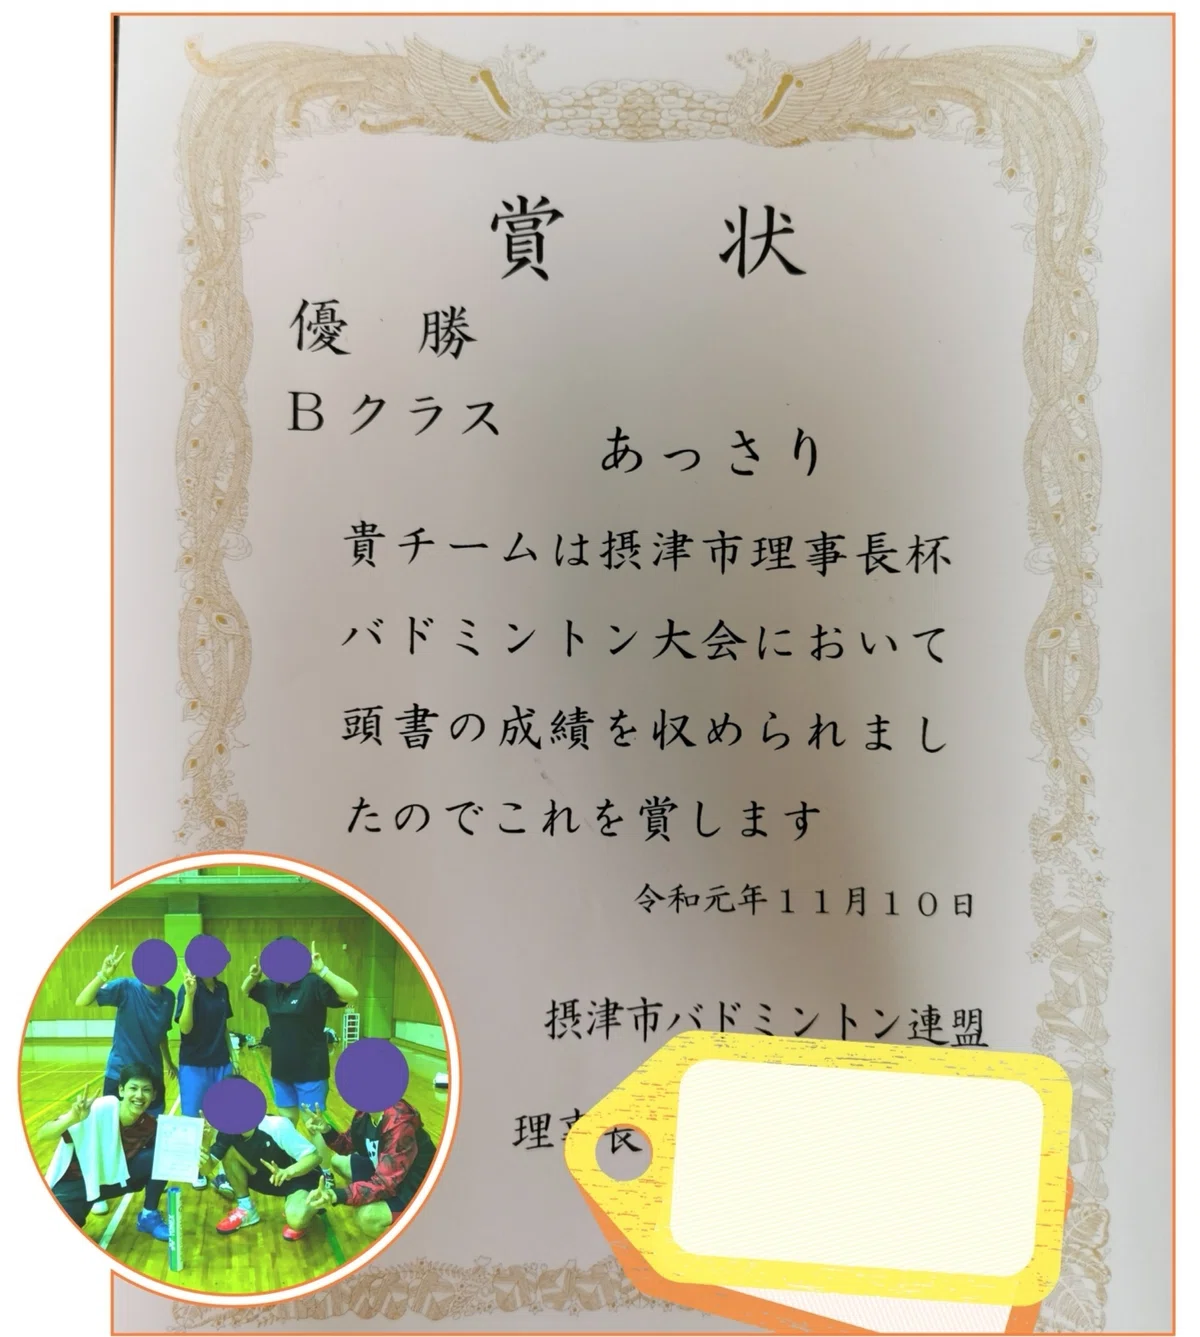 賞状
優勝
Bクラス
あっさり
貴チームは摂津市理事長杯
バドミントン大会において
頭書の成績を収められまし
たのでこれを賞します
令和元年11月10日
摂津市バドミントン連盟
理事長